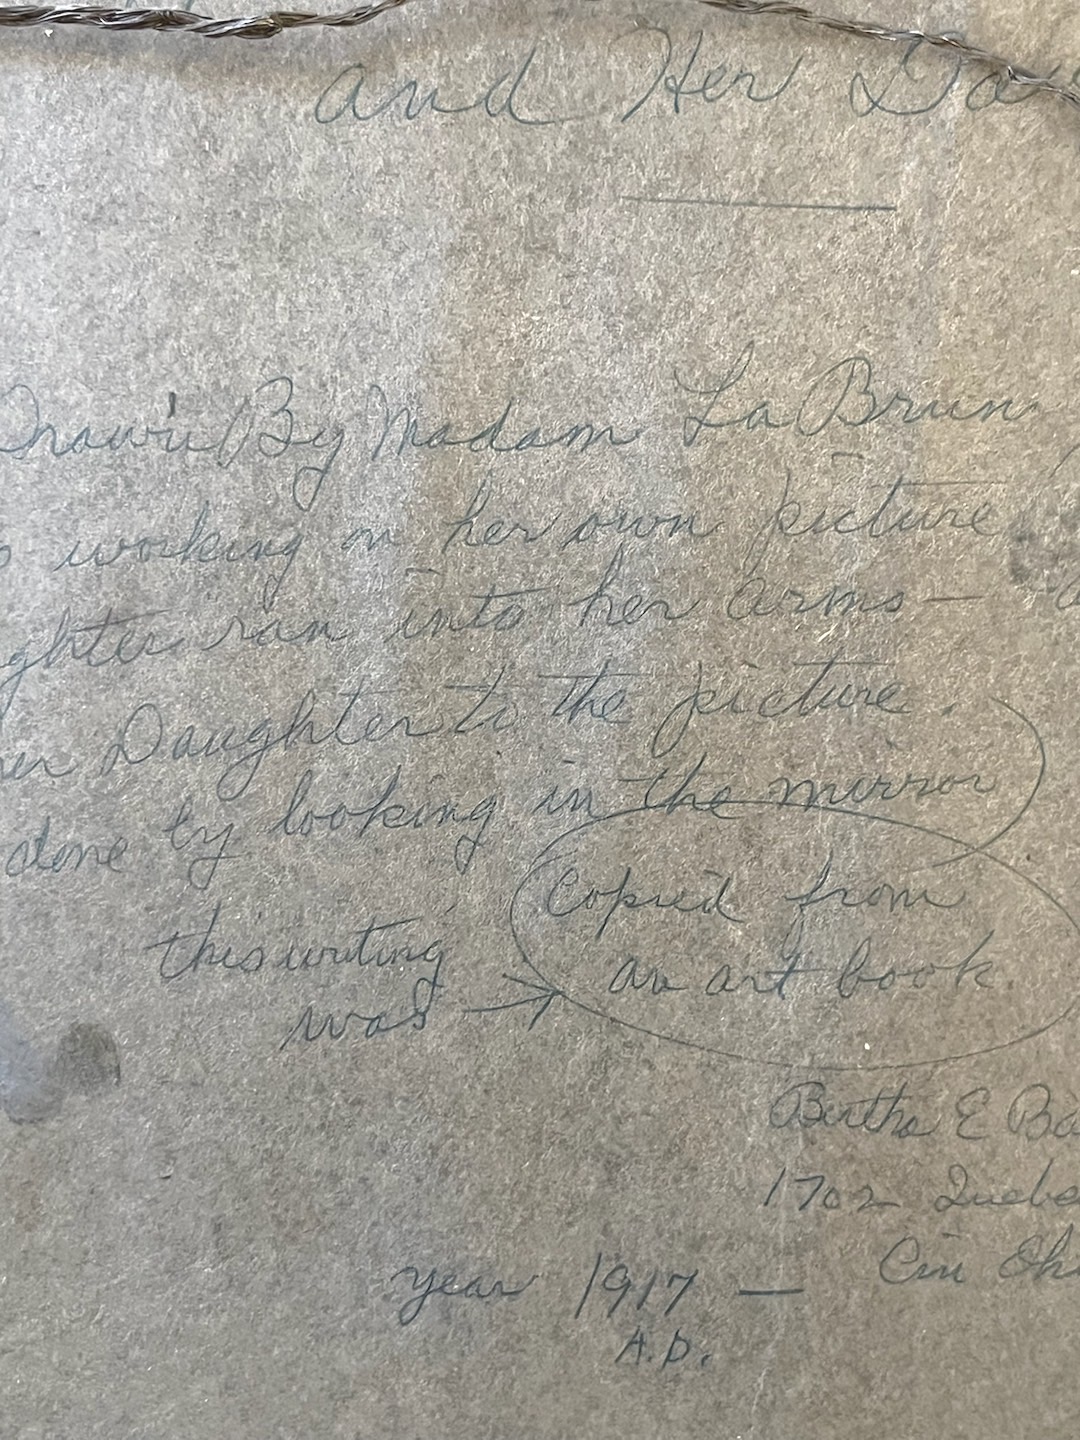 and Her Da
Drawn By Madam La Brun
working on her own picture
ghter ran into her arms —
er Daughter to the picture.
done by looking in the mirror
Copied from
an art book.
this writing
was
Bertha E Ba
1702 Quebe
Cin Ohi
year 1917 —
A.D.